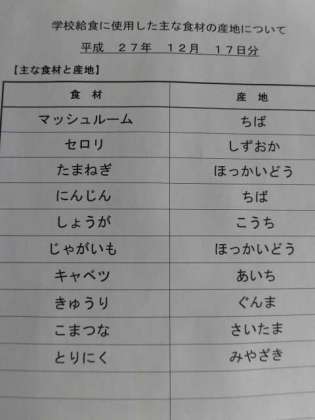 学校給食に使用した主な食材の産地について
平成 27年 12月 17日分
【主な食材と産地】
食材 産地
マッシュルーム ちば
セロリ しずおか
たまねぎ ほっかいどう
にんじん ちば
しょうが こうち
じゃがいも ほっかいどう
キャベツ あいち
きゅうり ぐんま
こまつな さいたま
とりにく みやざき